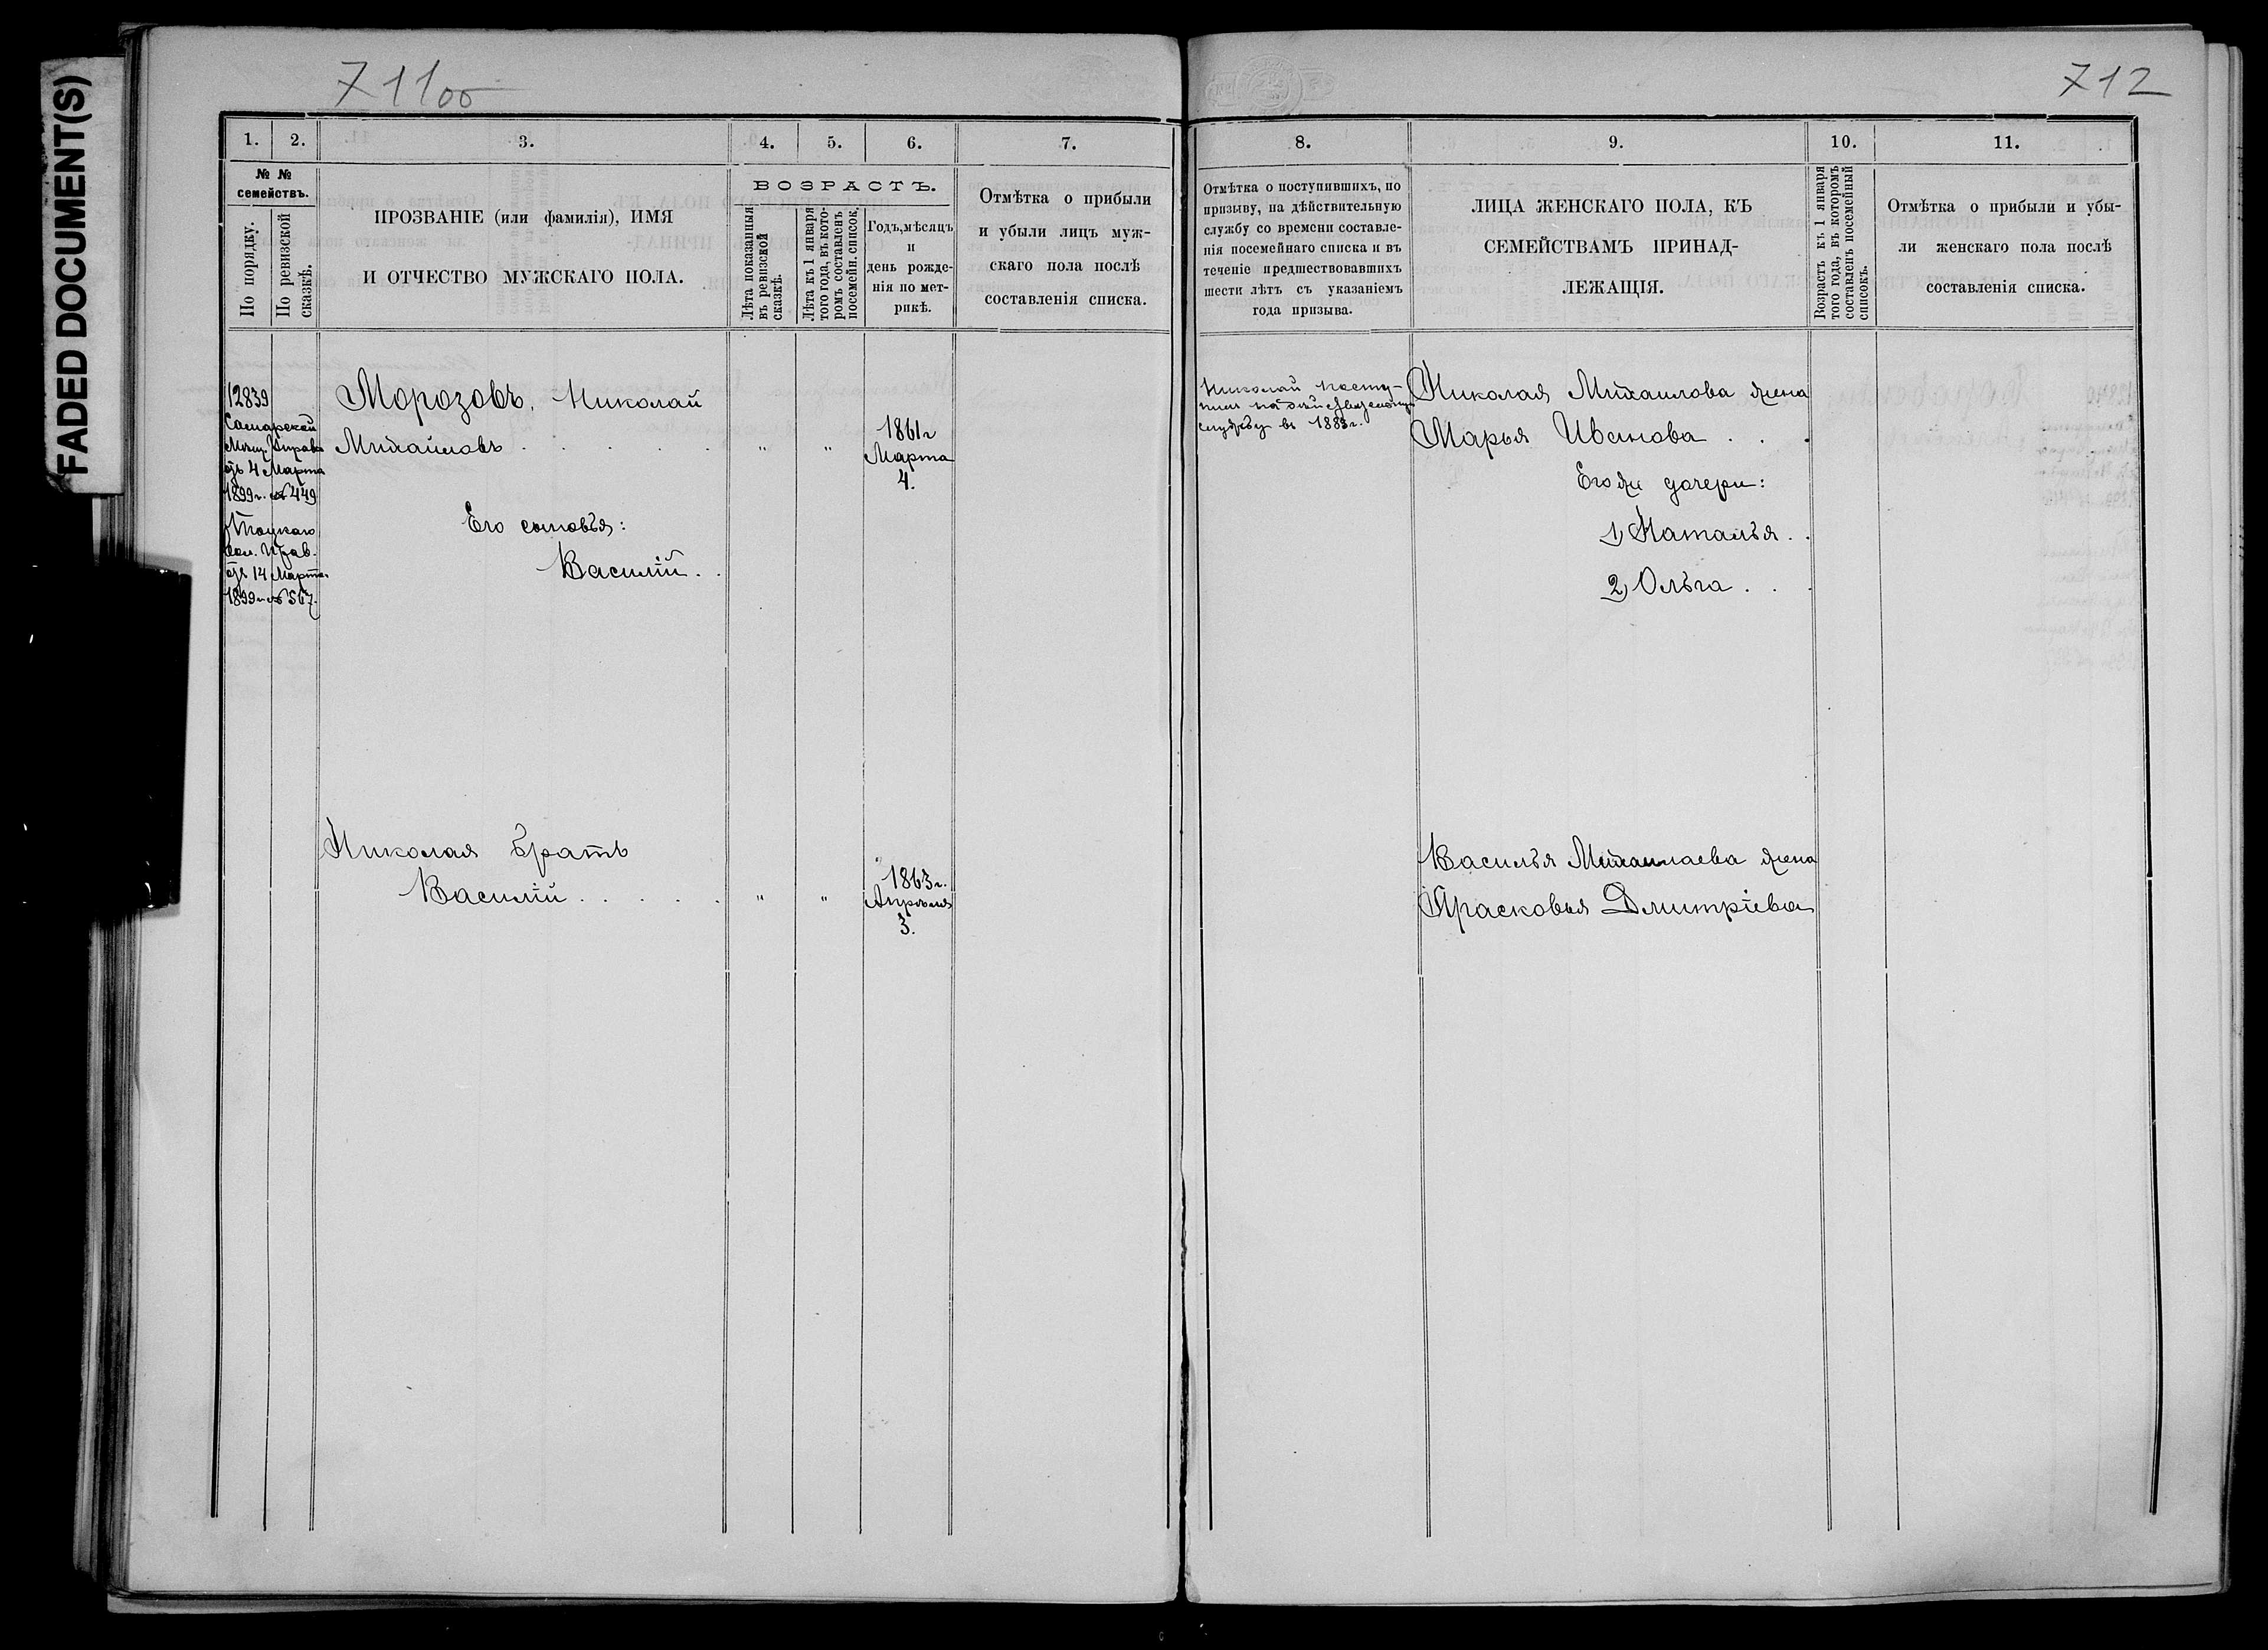 FADED DOCUMENT(S)
711об
712
1.
2.
3.
4.
5.
6.
7.
№ №
семействъ.
По порядку.
По ревизской
сказкѣ.
ПРОЗВАНІЕ (или фамилія), ИМЯ
И ОТЧЕСТВО МУЖСКАГО ПОЛА.
ВОЗРАСТЪ.
Лѣта показанныя
въ ревизской
сказкѣ.
Лѣта къ 1 января
того года, въ кото-
ромъ составленъ
посемейн. список.
Годъ, мѣсяцъ
и
день рожде-
нія по мет-
рикѣ.
Отмѣтка о прибыли
и убыли лицъ муж-
скаго пола послѣ
составленія списка.
12839
Самарской
Мѣщ. Управы
отъ 4 Марта
1899г. № 449
Вол. Прав.
отъ 14 Марта
1899г. № 567.
Морозовъ, Николай
Михайловъ . . . . . " "
1861г
Марта
4.
Его сыновья:
Василій . .
Николая братъ
Василій . . . . . " "
1863г.
Апрѣля
3.
8.
9.
10.
11.
Отмѣтка о поступившихъ, по
призыву, на дѣйствительную
службу со времени составле-
нія посемейнаго списка и въ
теченіе предшествовавшихъ
шести лѣтъ съ указаніемъ
года призыва.
ЛИЦА ЖЕНСКАГО ПОЛА, КЪ
СЕМЕЙСТВАМЪ ПРИНАД-
ЛЕЖАЩІЯ.
Возрастъ къ 1 января
того года, въ которомъ
составленъ посемейный
списокъ.
Отмѣтка о прибыли и убы-
ли женскаго пола послѣ
составленія списка.
Николай посту-
пилъ на дѣйствительную
службу въ 1883г.
Николая Михаилова жена
Марья Иванова . . .
Его же дочери:
1) Наталья . .
2) Ольга . . .
Василья Михаилаева жена
Прасковья Дмитріева